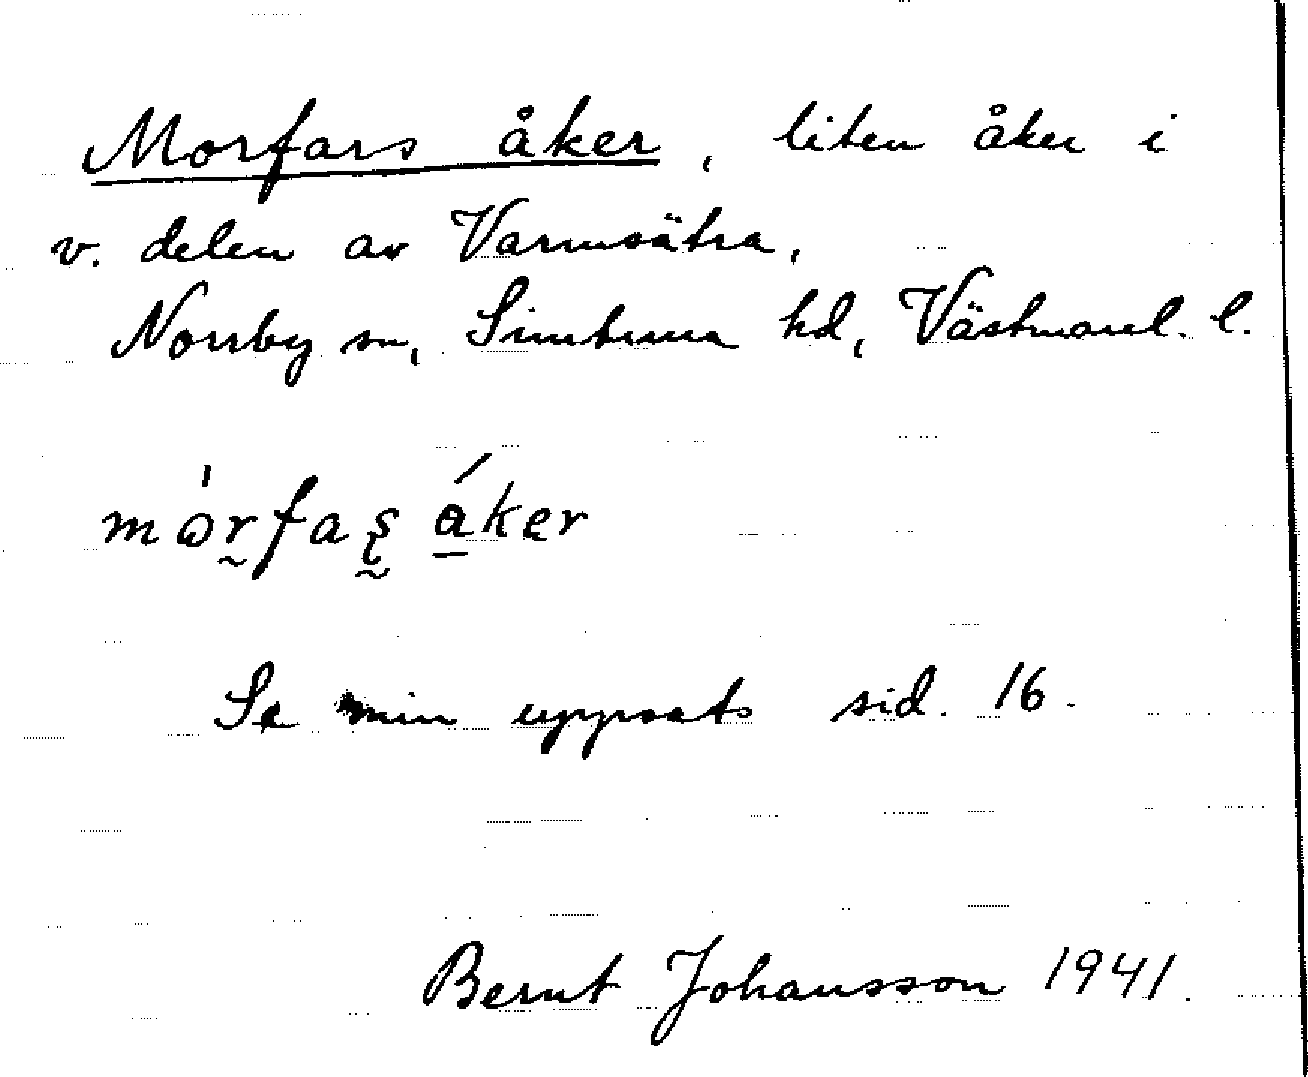 Morfars åker, liten åker i
v. delen av Varmsätra,
Norrby sn, Simtuna hd, Västmanl. l.
Se min uppsats sid. 16.
Bernt Johansson 1941.